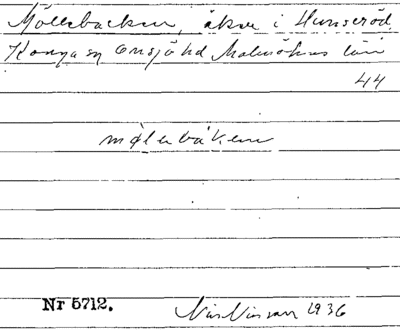 Möllebacken, åker i Hunseröd
Konga sn Onsjö hd Malmöhus län
44
mølebákenn
Nr 5712.
Nils Nilsson 1936